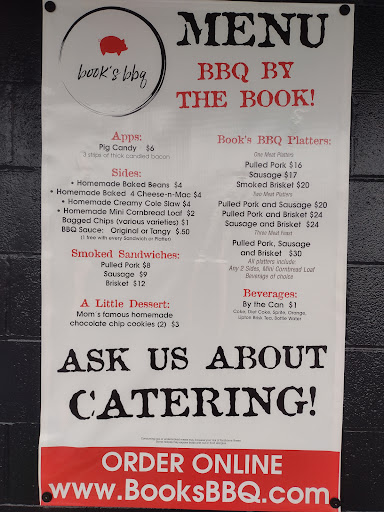 MENU
book's bbq
BBQ BY
THE BOOK!
Apps:
Pig Candy $6
*3 strips of thick candied bacon
Sides:
• Homemade Baked Beans $4
• Homemade Baked 4 Cheese-n-Mac $4
• Homemade Creamy Cole Slaw $4
• Homemade Mini Cornbread Loaf $2
Bagged Chips (various varieties) $1
BBQ Sauce: Original or Tangy $.50
(1 free with every Sandwich or Platter)
Smoked Sandwiches:
Pulled Pork $8
Sausage $9
Brisket $12
A Little Dessert:
Mom's famous homemade
chocolate chip cookies (2) $3
Book's BBQ Platters:
One Meat Platters
Pulled Pork $16
Sausage $17
Smoked Brisket $20
Two Meat Platters
Pulled Pork and Sausage $20
Pulled Pork and Brisket $24
Sausage and Brisket $24
Three Meat Feast
Pulled Pork, Sausage
and Brisket $30
All platters include:
Any 2 Sides, Mini Cornbread Loaf
Beverage of choice
Beverages:
By the Can $1
Coke, Diet Coke, Sprite, Orange,
Lipton Brisk Tea, Bottle Water
ASK US ABOUT
CATERING!
ORDER ONLINE
www.BooksBBQ.com